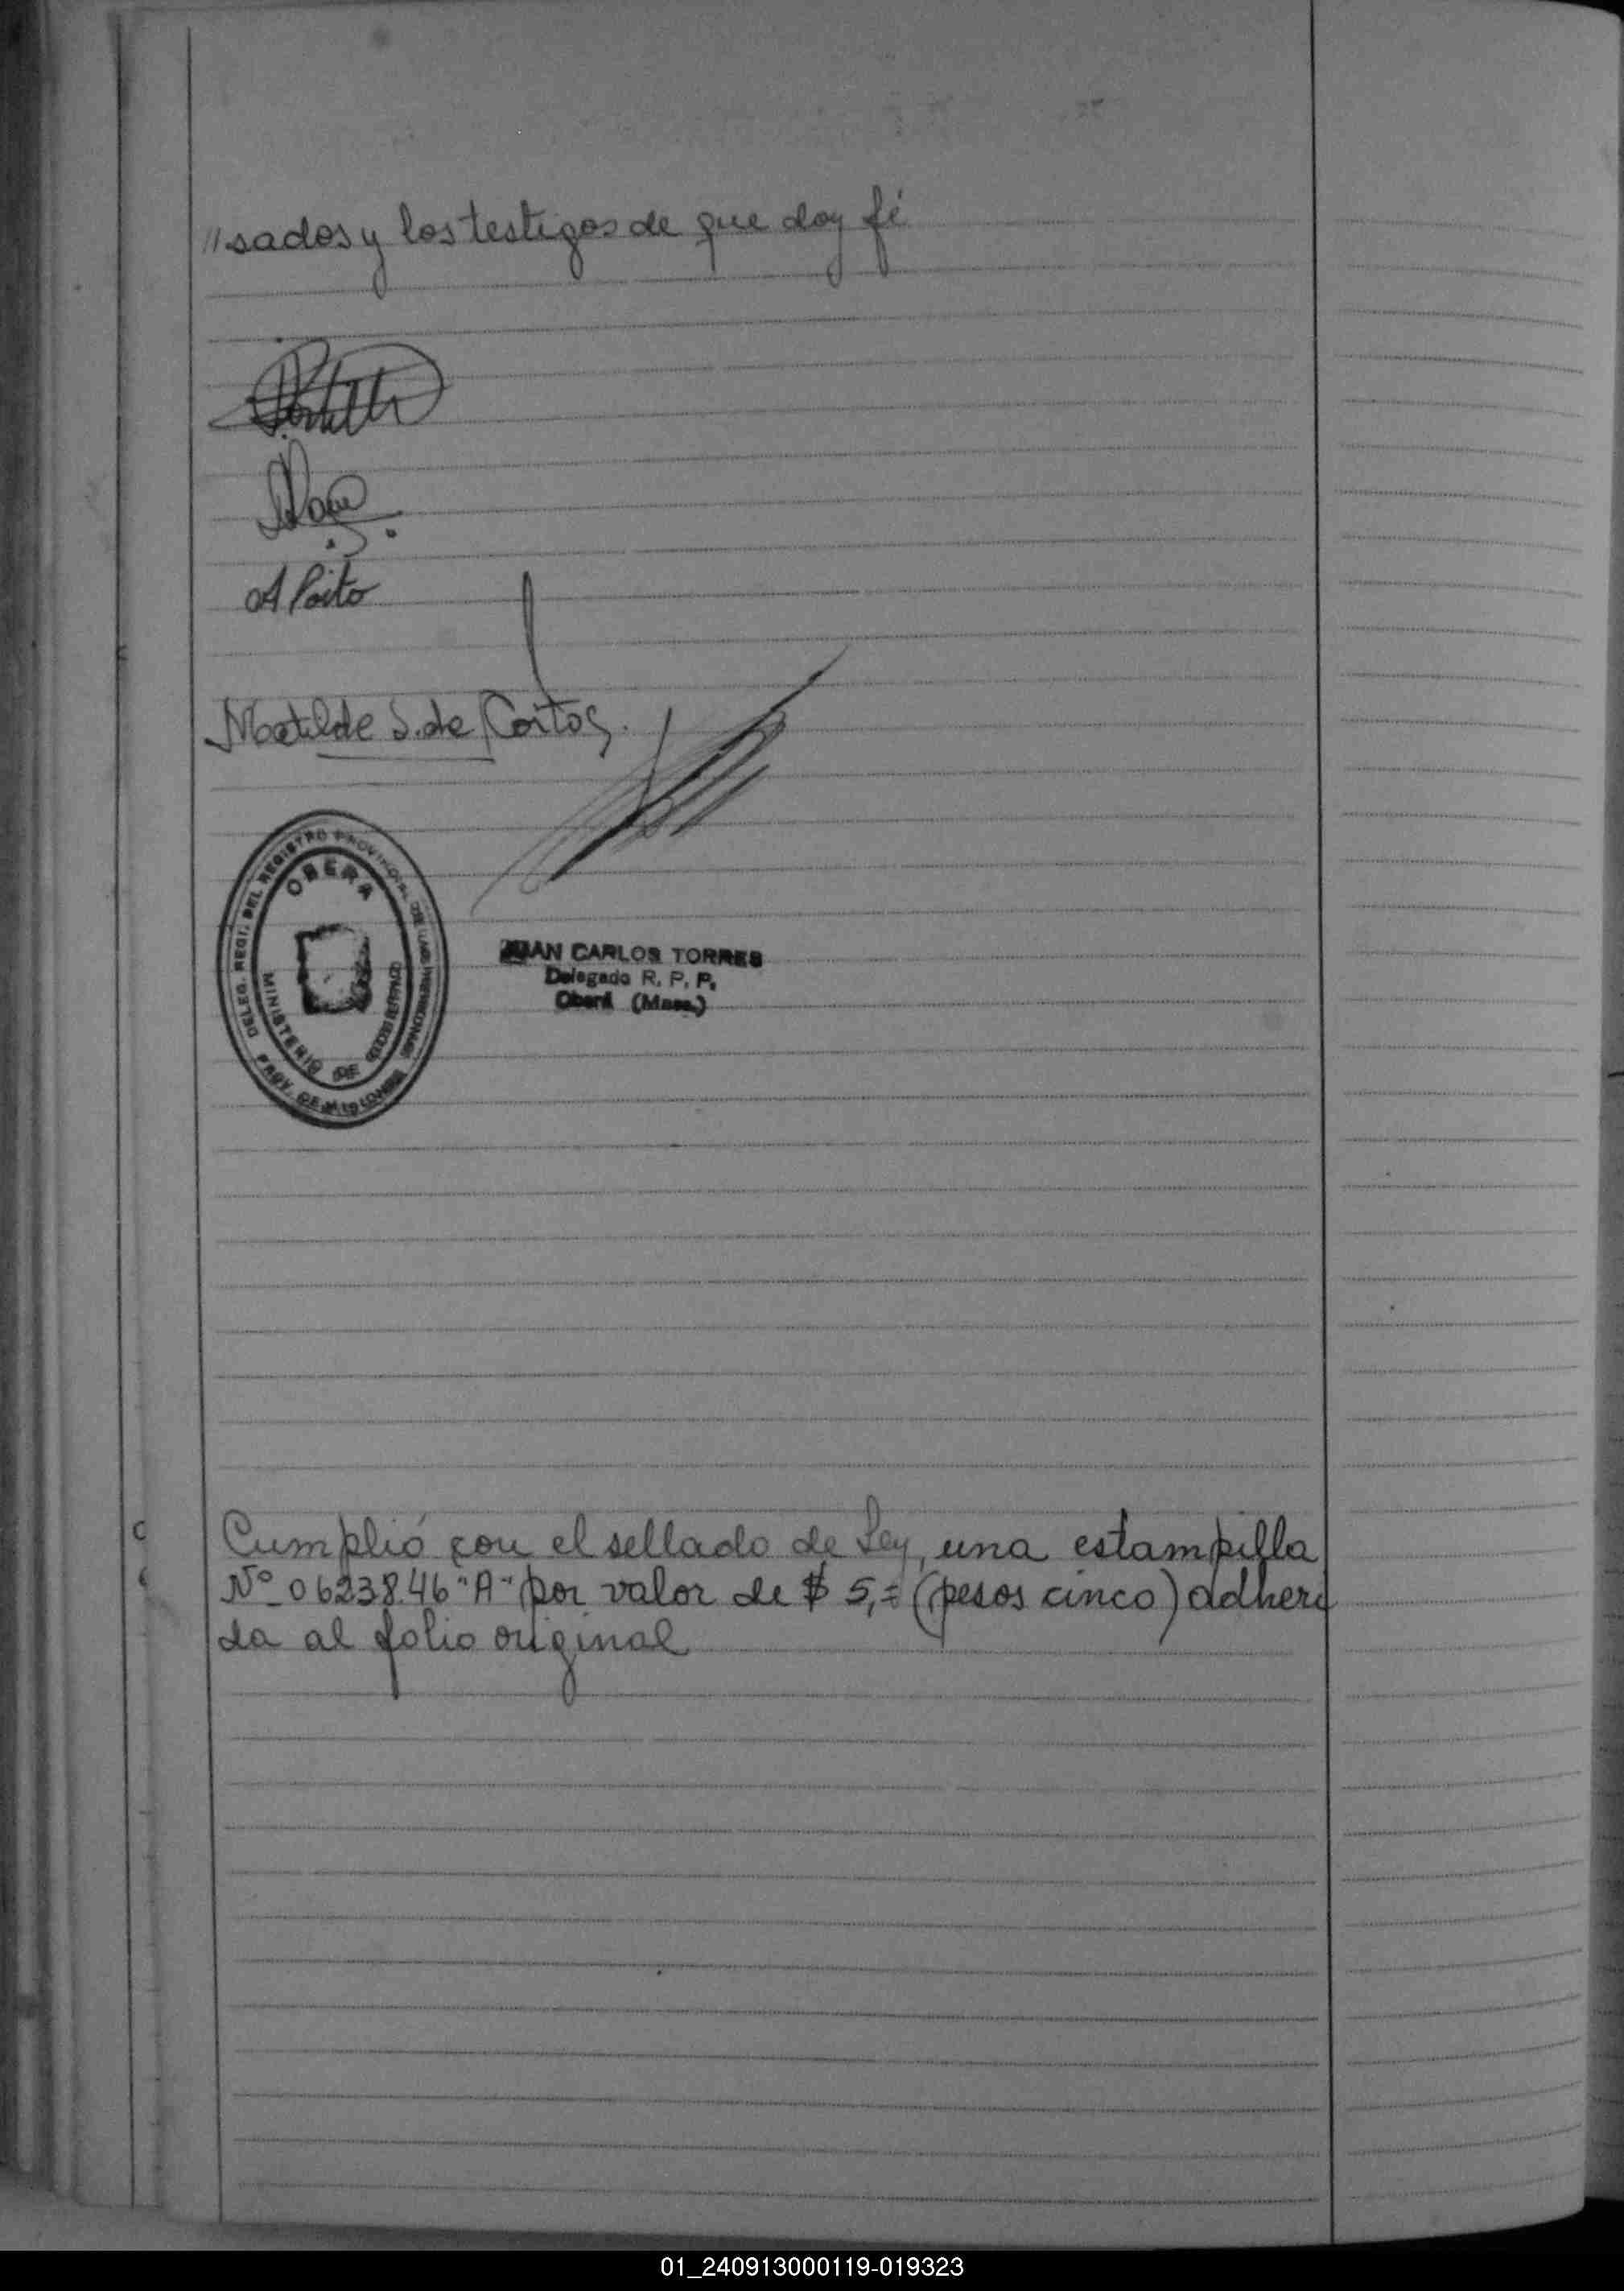 //sados y los testigos de que doy fé
A Poito
Matilde S. de Coitos.
DELEG. REGI. DEL REGISTRO PROVINCIAL DE LAS PERSONAS
OBERA
MINISTERIO DE GOBIERNO
PROV. DE MISIONES
JUAN CARLOS TORRES
Delegado R. P. P.
Oberá (Mnes.)
Cumplió con el sellado de Ley, una estampilla
Nº 0623846 "A" por valor de $ 5,= (pesos cinco) adheri
da al folio original
01_240913000119-019323